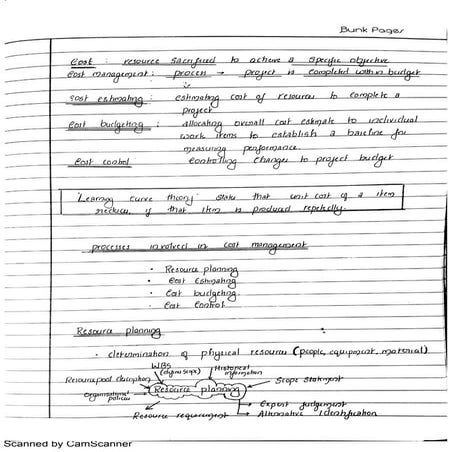 Bunk Pages
Cost : resource sacrificed to achieve a specific objective
Cost management : process → project is completed within budget
Cost estimating : estimating cost of resources to complete a
project
Cost budgeting : allocating overall cost estimate to individual
work items to establish a baseline for
measuring performance.
Cost control controlling changes to project budget
"Learning curve theory" states that unit cost of a item
reduces, if that item is produced repeatedly.
processes involved in cost management
• Resource planning
• Cost Estimating
• Cost budgeting.
• Cost Control.
Resource planning
• determination of physical resources (people, equipment, material)
WBS Historical
(defines scope) information
Resource pool description Resource planning Scope Statement
Organisational
policies
→ Expert judgement
Resource requirement → Alternative identification
Scanned by CamScanner